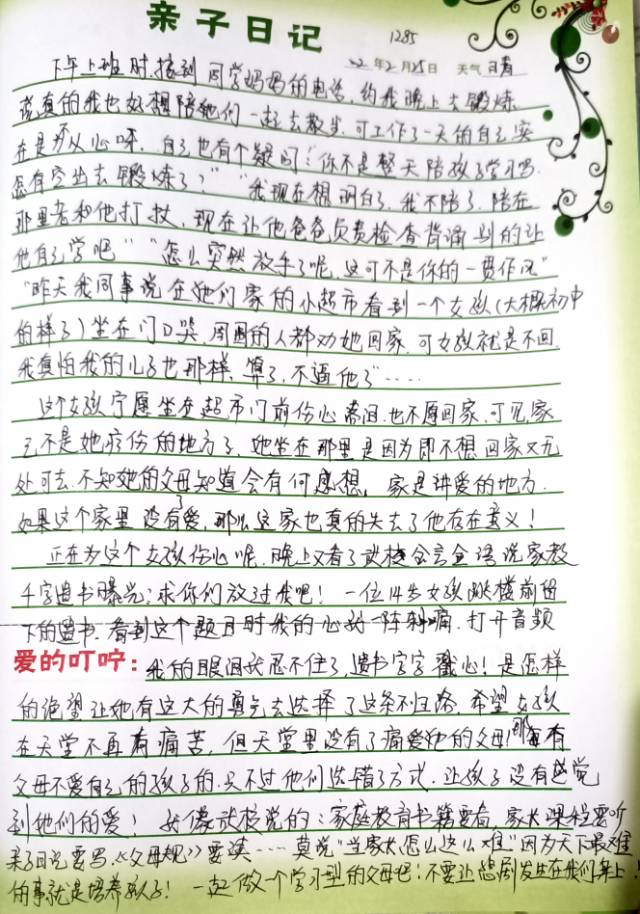 亲子日记
1285
22年2月25日 天气 晴
下午上班时.接到同学妈妈的电话,约我晚上去锻炼
说真的我也好想陪她们一起去散步.可工作了一天的自己实
在是力从心呀,自己也有个疑问:"你不是整天陪孩子学习吗,
怎有空出去锻炼了?" "我现在想明白了.我不陪了.陪在
那里老和他打仗,现在让他爸爸负责检查背诵 别的让
他自己学吧" "怎么突然放手了呢,这可不是你的一贯作风"
"昨天我同事说在她们家的小超市看到一个女孩(大概初中
的样子)坐在门口哭,周围的人都劝她回家.可女孩就是不回.
我真怕我的儿子也那样,算了,不逼他了"……
这个女孩宁愿坐在超市门前伤心落泪.也不愿回家.可见,家
已不是她疗伤的地方了,她坐在那里是因为即不想回家又无
处可去.不知她的父母知道会有何感想,家是讲爱的地方.
如果这个家里没有爱,那么这家也真的失去了他存在意义!
正在为这个女孩伤心呢,晚上又看了校 说家教
千字遗书曝光:求你们放过我吧!一位14岁女孩跳楼前留
下的遗书.看到这个题目时我的心一阵刺痛.打开音频
爱的叮咛:我的眼泪忍不住了,遗书字字戳心!是怎样
的绝望让她有这大的勇气去选择了这条不归路.希望女孩
在天堂不再有痛苦,但天堂里没有了痛爱她的父母!那有
父母不爱自己的孩子的.只不过他们选错了方式.让孩子没有感觉
到他们的爱!就像校说的:家庭教育书籍要看,家长课程要听
亲子日记要写.《父母规》要读…… 莫说"当家长怎么这么难"因为天下最难
的事就是培养孩子!一起做个学习型的父母吧!不要让悲剧发生在我们身上!